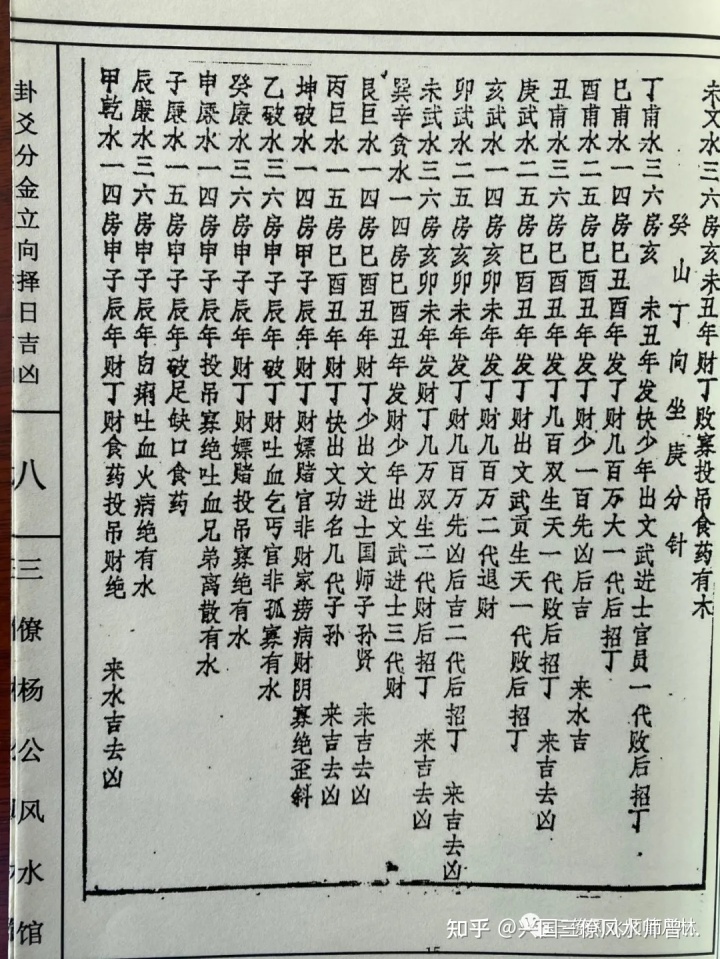 未文水三六房亥未丑年财丁败寡投吊食药有木
癸山丁向坐庚分针
丁甫水三六房亥 未丑年发快少年出文武进士官员一代败后招丁
巳甫水一四房巳丑酉年发了财几百万大一代后招丁
酉甫水二五房巳酉丑年发丁财少一百先凶后吉 来水吉
丑甫水三六房巳酉丑年发丁几百双生天一代败后招丁 来吉去凶
庚武水二五房巳酉丑年发丁财出文武贡生天一代败后招丁
亥武水一四房亥卯未年发丁财几百万二代退财
卯武水二五房亥卯未年发丁财几百万先凶后吉二代后招丁 来吉去凶
未武水三六房亥卯未年发财丁几万双生二代财后招丁 来吉去凶
巽辛贪水一四房巳酉丑年发财少年出文武进士三代财
艮巨水一四房巳酉丑年财丁少出文进士国师子孙贤 来吉去凶
丙巨水一五房巳酉丑年财丁快出文功名几代子孙 来吉去凶
坤破水一四房甲子辰年财丁财嫖赌官非财家痨病财阴寡绝歪斜
乙破水三六房申子辰年破丁财吐血乞丐官非孤寡有水
癸廉水三六房申子辰年财丁财嫖赌投吊寡绝有水
申廉水一四房申子辰年投吊寡绝吐血兄弟离散有水
子廉水一五房申子辰年破足缺口食药
辰廉水三六房申子辰年白痢吐血火病绝有水
甲乾水一四房申子辰年财丁财食药投吊财绝 来水吉去凶
卦爻分金立向择日吉凶
八
三僚杨公风水馆
15
知乎 @兴国三僚风水师曾林